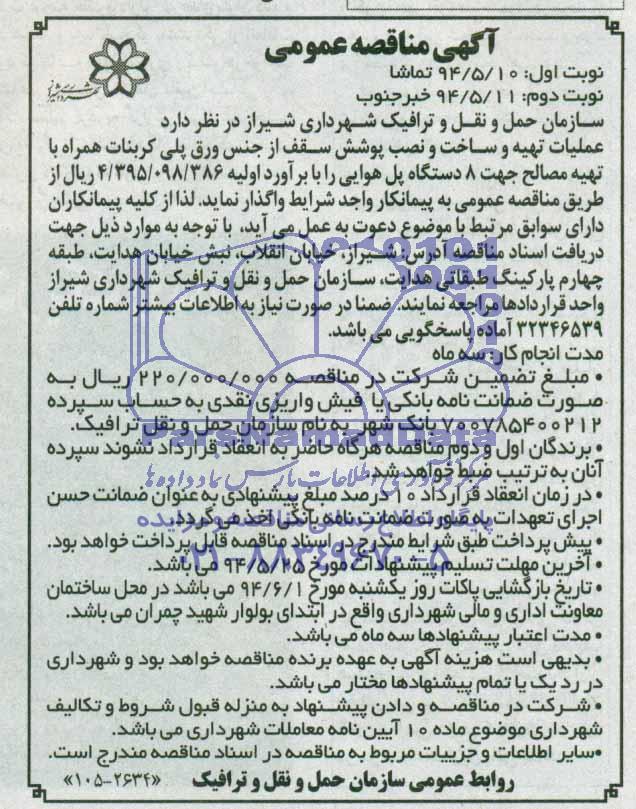 آگهی مناقصه عمومی
نوبت اول: ۹۴/۵/۱۰ تماشا
نوبت دوم: ۹۴/۵/۱۱ خبرجنوب
سازمان حمل و نقل و ترافیک شهرداری شیراز در نظر دارد
عملیات تهیه و ساخت و نصب پوشش سقف از جنس ورق پلی کربنات همراه با
تهیه مصالح جهت ۸ دستگاه پل هوایی را با برآورد اولیه ۴/۳۹۵/۰۹۸/۳۸۶ ریال از
طریق مناقصه عمومی به پیمانکار واجد شرایط واگذار نماید. لذا از کلیه پیمانکاران
دارای سوابق مرتبط با موضوع دعوت به عمل می آید، با توجه به موارد ذیل جهت
دریافت اسناد مناقصه آدرس: شیراز، خیابان انقلاب، نبش خیابان هدایت، طبقه
چهارم پارکینگ طبقاتی هدایت، سازمان حمل و نقل و ترافیک شهرداری شیراز
واحد قراردادها مراجعه نمایند. ضمنا در صورت نیاز به اطلاعات بیشتر شماره تلفن
۳۲۳۴۶۵۳۹ آماده پاسخگویی می باشد.
مدت انجام کار: سه ماه
• مبلغ تضمین شرکت در مناقصه ۲۲۰/۰۰۰/۰۰۰ ریال به
صورت ضمانت نامه بانکی یا فیش واریزی نقدی به حساب سپرده
۷۰۰۷۸۵۴۰۰۲۱۲ بانک شهر به نام سازمان حمل و نقل ترافیک.
• برندگان اول و دوم مناقصه هرگاه حاضر به انعقاد قرارداد نشوند سپرده
آنان به ترتیب ضبط خواهد شد.
• در زمان انعقاد قرارداد ۱۰ درصد مبلغ پیشنهادی به عنوان ضمانت حسن
اجرای تعهدات به صورت ضمانت نامه بانکی اخذ می گردد.
• پیش پرداخت طبق شرایط مندرج در اسناد مناقصه قابل پرداخت خواهد بود.
• آخرین مهلت تسلیم پیشنهادات مورخ ۹۴/۵/۲۵ می باشد.
• تاریخ بازگشایی پاکات روز یکشنبه مورخ ۹۴/۶/۱ می باشد در محل ساختمان
معاونت اداری و مالی شهرداری واقع در ابتدای بولوار شهید چمران می باشد.
• مدت اعتبار پیشنهادها سه ماه می باشد.
• بدیهی است هزینه آگهی به عهده برنده مناقصه خواهد بود و شهرداری
در رد یک یا تمام پیشنهادها مختار می باشد.
• شرکت در مناقصه و دادن پیشنهاد به منزله قبول شروط و تکالیف
شهرداری موضوع ماده ۱۰ آیین نامه معاملات شهرداری می باشد.
•سایر اطلاعات و جزییات مربوط به مناقصه در اسناد مناقصه مندرج است.
روابط عمومی سازمان حمل و نقل و ترافیک «۲۶۳۴-۱۰۵»
ParsNamadData
مرکز فرآوری اطلاعات پارس نماد داده ها
پایگاه اطلاع رسانی مناقصه و مزایده
۰۲۱-۸۸۳۴۹۶۷۰-۵